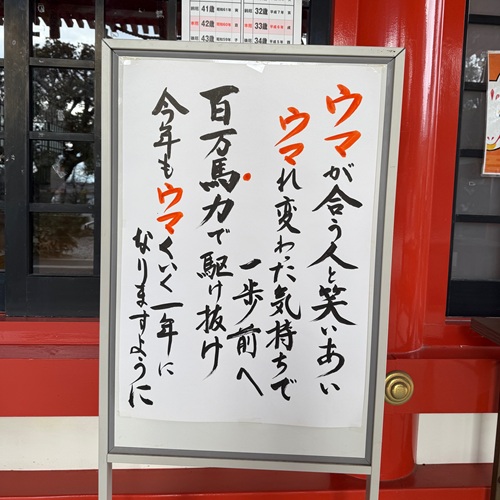 ウマが合う人と笑いあい
ウマれ変わった気持ちで
一歩前へ
百万馬力で駆け抜け
今年もウマくいく一年に
なりますように
41歳
42歳
43歳
32歳
33歳
34歳